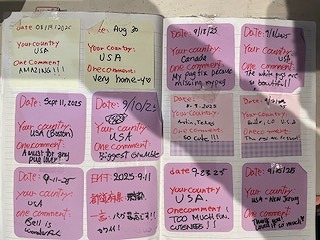 Date 08/19/2025
Your country
USA
One Comment
AMAZING!!!
Date: Aug 30
Your country:
USA
One comment:
very home-y
Date: 9/18/25
Your country
Canada
One Comment
My pug fix because
missing my pug
Date: 9/
Your country:
USA
One comment:
The white pugs are
so beautiful!!
Date: Sept 11, 2025
Your country:
USA (Boston)
One comment:
A must for any
pug lover
Date: 9/10/25
Your country
USA
One comment:
Biggest
8-9-2025
Austin, Texas
One comment:
so cute!!!
Date: 9/
Your country:
, CO U.S.A
One comment:
Date: 9-11-25
Your country:
USA
One comment:
Bell is
wonderful
日付: 2025.9.11
都道府県:
一言:
9-28-25
Your country.
USA.
One comment!
TOO MUCH FUN
CUTENESS!!
Date:
Your country:
USA - New Jersey
One comment:
Thank you!
Loved it so much